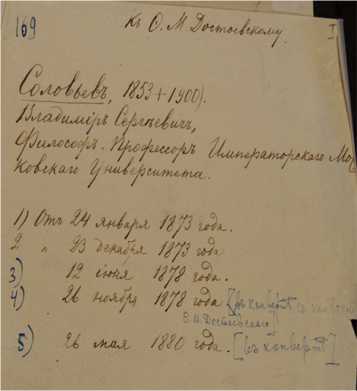 169
Къ Ѳ. М. Достоевскому.
I
Соловьевъ, 1853 + 1900).
Владиміръ Сергѣевичъ,
Философъ. Профессоръ Императорскаго Мос
ковскаго Университета.
1) Отъ 24 января 1873 года.
2 „ 23 декабря 1873 года
3) 12 іюня 1878 года.
4) 26 ноября 1878 года [въ конвертѣ
Достоевскаго]
5) 26 мая 1880 года. [въ конвертѣ]